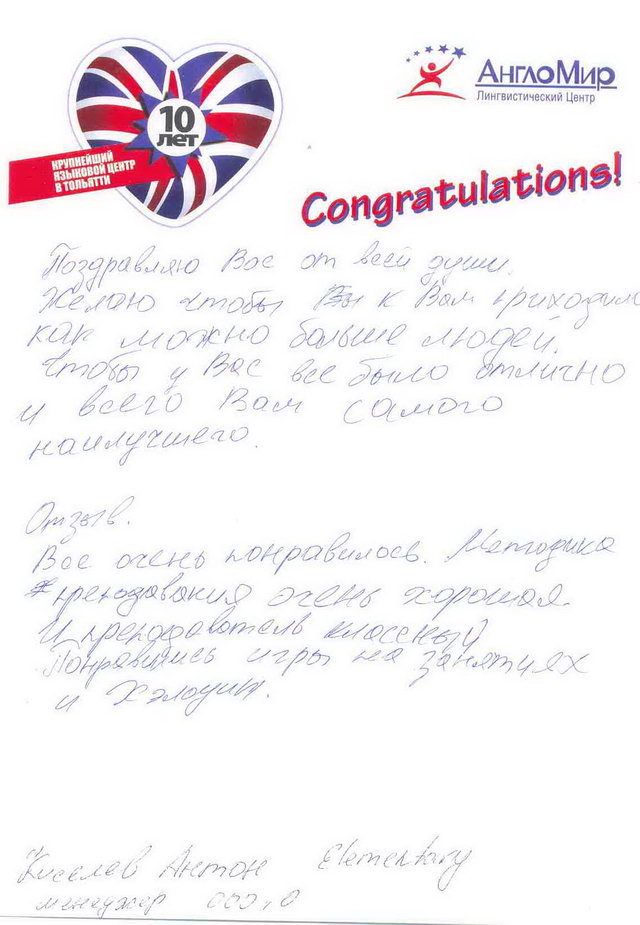 10
лет
КРУПНЕЙШИЙ
ЯЗЫКОВОЙ ЦЕНТР
В ТОЛЬЯТТИ
АнглоМир
Лингвистический Центр
Congratulations!
Поздравляю Вас от всей души.
Желаю чтобы к Вам приходило
как можно больше людей.
Чтобы у Вас все было отлично
и всего Вам самого
наилучшего.
Отзыв.
Все очень понравилось. Методика
преподавания очень хорошая.
И преподаватель классный
Понравились игры на занятиях
и Хэлоуин.
Киселев Антон Elementary
менеджер ООО